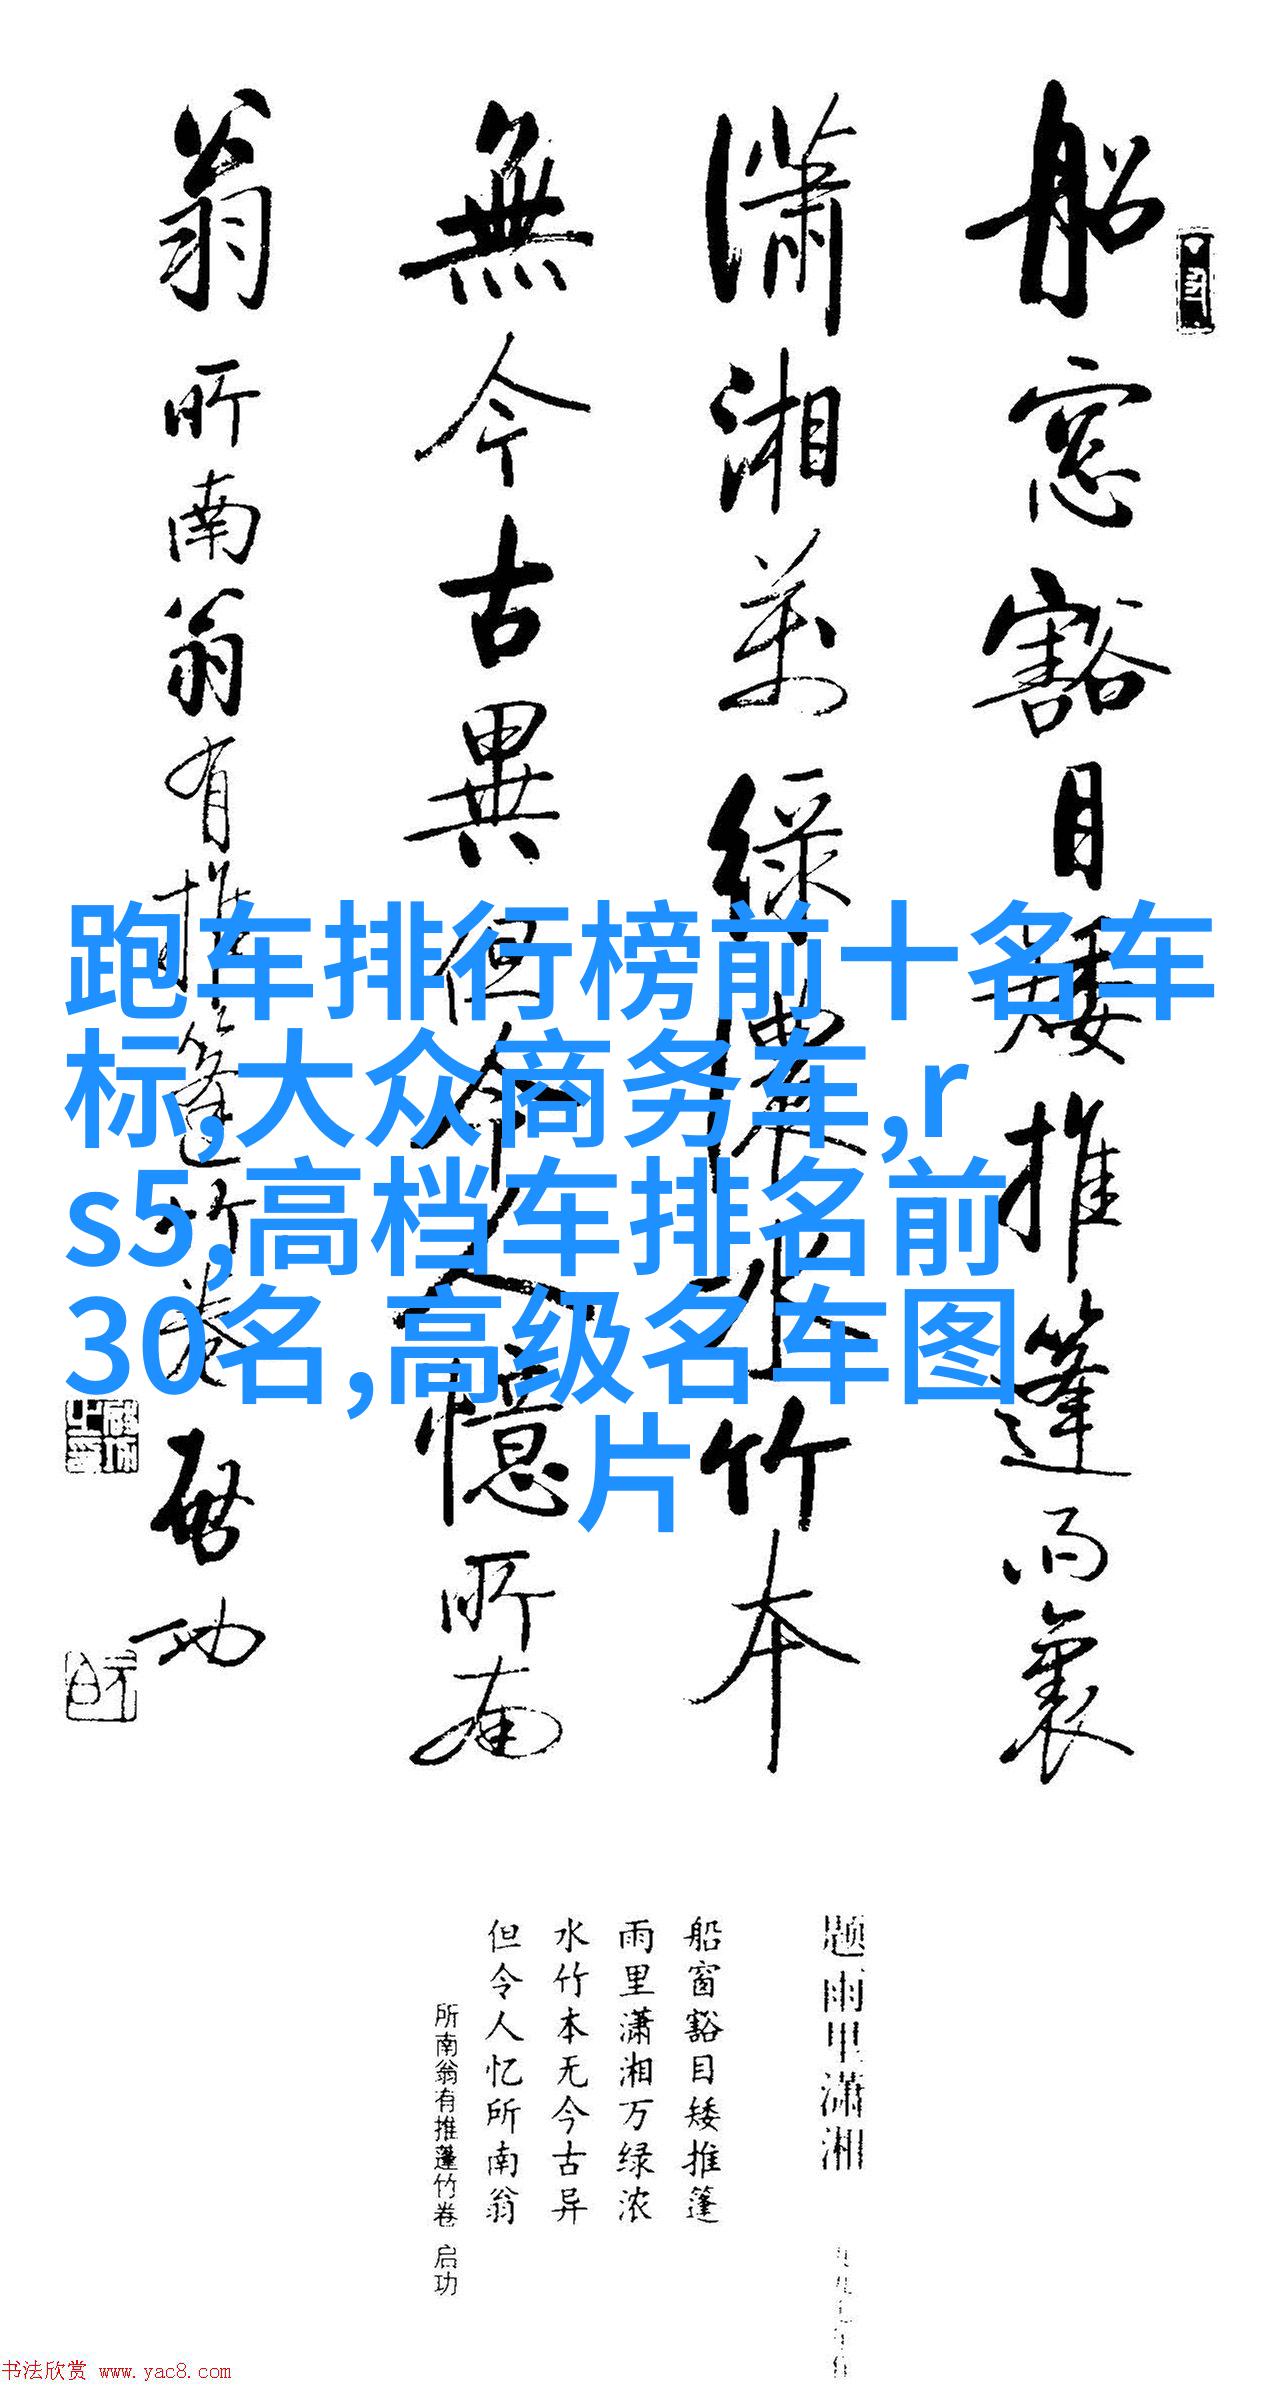 船窓豁目矮推篷雨裏
瀟湘萬綠濃水竹本
無今古異但令人憶所南
翁 所南翁有推篷竹卷 啟功
跑车排行榜前十名车
标,大众商务车,r
s5,高档车排名前
30名,高级名车图
片
题雨里潇湘
船窗豁目矮推篷
雨里潇湘万绿浓
水竹本无今古异
但令人忆所南翁
所南翁有推蓬竹卷 启功
书法欣赏 www.yac8.com